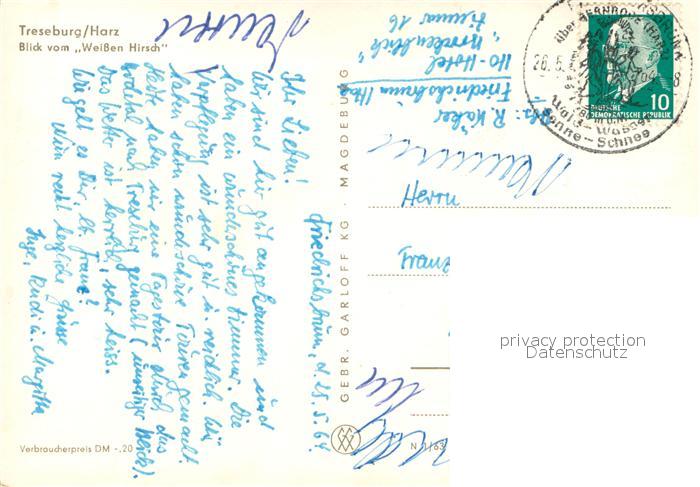 Treseburg/Harz
Blick vom „Weißen Hirsch"
Friedrichsbrunn, d. 25.5.64
Ihr Lieben!
Wir sind hier gut angekommen und
haben ein wunderschönes Zimmer. Die
Verpflegung ist sehr gut u. reichlich. Wir
haben schon wunderschöne Touren gemacht.
Heute haben wir eine Tagestour durch das
Bodetal nach Treseburg gemacht
Das Wetter ist herrlich, sehr heiss.
Wie geht es Dir, lb. Franz?
Viele recht herzliche Grüsse
Inge, Rudi u. Margitta
Verbraucherpreis DM -,20
GEBR. GARLOFF KG · MAGDEBURG
N 1/63
Abs: R.
Friedrichsbrunn/Harz
HO-Hotel
„Brockenblick"
Zimmer 16
Herrn
Franz
26.5.
über BERNBURG
Wald - Wasser
Sonne - Schnee
DEUTSCHE
DEMOKRATISCHE REPUBLIK
10
privacy protection
Datenschutz